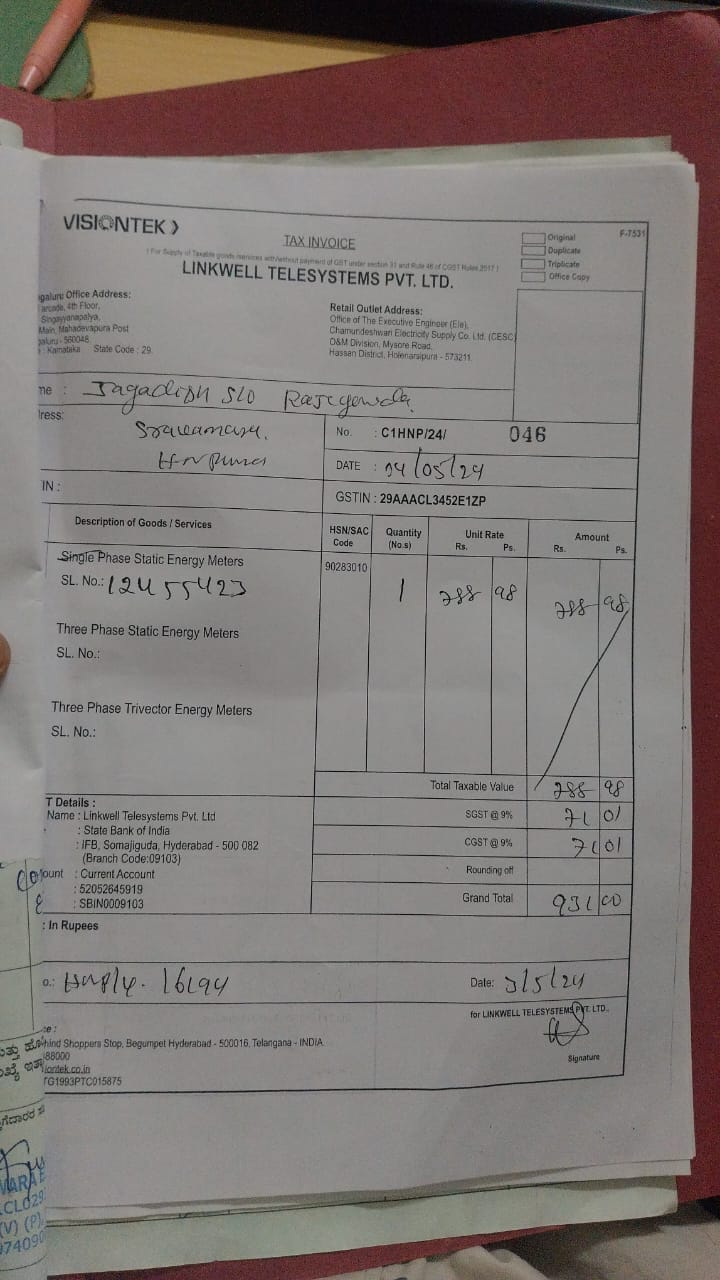 VISIONTEK
TAX INVOICE
( For Supply of Taxable goods /services with/without payment of GST under section 31 and Rule 46 of CGST Rules 2017 )
LINKWELL TELESYSTEMS PVT. LTD.
Original
Duplicate
Triplicate
Office Copy
F-7531
galuru Office Address:
arcade, 4th Floor,
Singayyanapalya,
Main, Mahadevapura Post
galuru - 560048
: Karnataka State Code : 29
Retail Outlet Address:
Office of The Executive Engineer (Ele),
Chamundeshwari Electricity Supply Co. Ltd. (CESC)
O&M Division, Mysore Road,
Hassan District, Holenarsipura - 573211.
me : Jagadish S/o Rajegowda
ress:
No. : C1HNP/24/ 046
DATE : 04/05/24
IN :
GSTIN : 29AAACL3452E1ZP
Description of Goods / Services
HSN/SAC Code
Quantity (No.s)
Unit Rate Rs. Ps.
Amount Rs. Ps.
Single Phase Static Energy Meters
SL. No.: 12455423
90283010 1 788 98 788 98
Three Phase Static Energy Meters
SL. No.:
Three Phase Trivector Energy Meters
SL. No.:
Total Taxable Value 788 98
T Details :
Name : Linkwell Telesystems Pvt. Ltd
: State Bank of India
: IFB, Somajiguda, Hyderabad - 500 082
(Branch Code:09103)
ount : Current Account
: 52052645919
: SBIN0009103
SGST @ 9% 71 01
CGST @ 9% 71 01
Rounding off
Grand Total 931 00
: In Rupees
o.: 16194
Date: 3/5/24
for LINKWELL TELESYSTEMS PVT. LTD.,
Signature
ce :
hind Shoppers Stop, Begumpet Hyderabad - 500016, Telangana - INDIA
88000
iontek.co.in
TG1993PTC015875
VARA
CL028
(V) (P)
74090